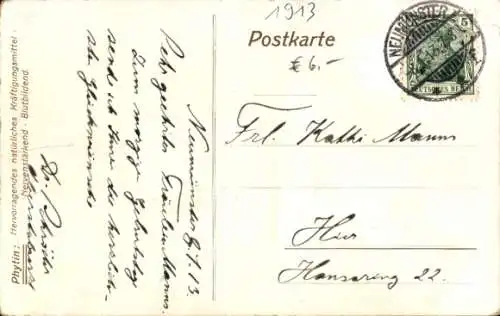 1913
Postkarte
€ 6.-
NEUMÜNSTER
5
DEUTSCHES REICH
Frl. Käthi Manns
Hier
Hansaring 22.
Neumünster 9/1.13
Sehr geehrtes Fräulein Manns.
Zum morgigen Geburtstag
sende ich Ihnen die herzlich-
sten Glückwünsche
Dr.
Phytin: Hervorragendes natürliches Kräftigungsmittel.
Nervenstärkend · Blutbildend.